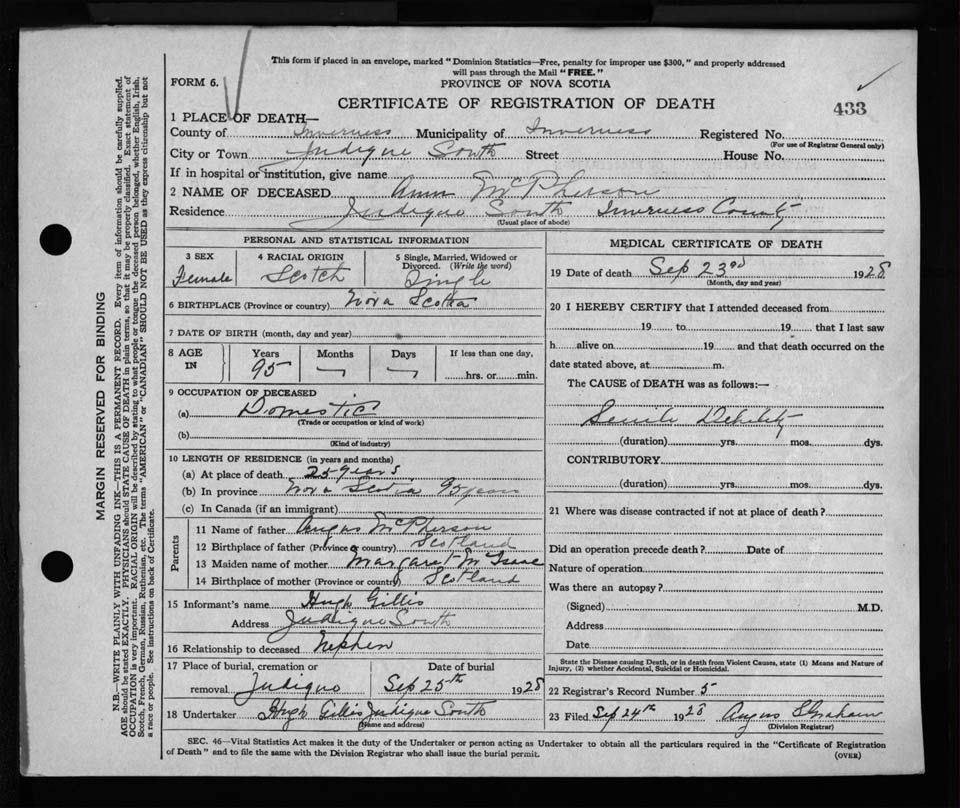 This form if placed in an envelope, marked "Dominion Statistics—Free, penalty for improper use $300," and properly addressed
will pass through the Mail "FREE."
FORM 6.
PROVINCE OF NOVA SCOTIA
CERTIFICATE OF REGISTRATION OF DEATH
433
1 PLACE OF DEATH—
County of Inverness Municipality of Inverness Registered No.
(For use of Registrar General only)
City or Town Judique South Street House No.
If in hospital or institution, give name
2 NAME OF DECEASED Ann McPherson
Residence Judique South Inverness County
(Usual place of abode)
PERSONAL AND STATISTICAL INFORMATION
3 SEX
Female
4 RACIAL ORIGIN
Scotch
5 Single, Married, Widowed or
Divorced. (Write the word)
Single
6 BIRTHPLACE (Province or country) Nova Scotia
7 DATE OF BIRTH (month, day and year)
8 AGE
IN
Years Months Days If less than one day,
95 hrs. or min.
9 OCCUPATION OF DECEASED
(a) Domestic
(Trade or occupation or kind of work)
(b)
(Kind of industry)
10 LENGTH OF RESIDENCE (in years and months)
(a) At place of death 25 years
(b) In province Nova Scotia 95 years
(c) In Canada (if an immigrant)
Parents
11 Name of father Angus McPherson
12 Birthplace of father (Province or country) Scotland
13 Maiden name of mother Margaret McIsaac
14 Birthplace of mother (Province or country) Scotland
15 Informant's name Hugh Gillis
Address Judique South
16 Relationship to deceased Nephew
17 Place of burial, cremation or Date of burial
removal Judique Sep 25th 1928
18 Undertaker Hugh Gillis Judique South
(Name and address)
MEDICAL CERTIFICATE OF DEATH
19 Date of death Sep 23rd 1928
(Month, day and year)
20 I HEREBY CERTIFY that I attended deceased from
19 to 19 that I last saw
h alive on 19 and that death occurred on the
date stated above, at m.
The CAUSE of DEATH was as follows:—
Senile Debility
(duration) yrs. mos. dys.
CONTRIBUTORY
(duration) yrs. mos. dys.
21 Where was disease contracted if not at place of death?
Did an operation precede death? Date of
Nature of operation
Was there an autopsy?
(Signed) M.D.
Address
Date
State the Disease causing Death, or in death from Violent Causes, state (1) Means and Nature of
Injury, (2) whether Accidental, Suicidal or Homicidal.
22 Registrar's Record Number 5
23 Filed Sep 24th 1928 Angus S Graham
(Division Registrar)
SEC. 46—Vital Statistics Act makes it the duty of the Undertaker or person acting as Undertaker to obtain all the particulars required in the "Certificate of Registration
of Death" and to file the same with the Division Registrar who shall issue the burial permit.
(OVER)
MARGIN RESERVED FOR BINDING
N.B.—WRITE PLAINLY WITH UNFADING INK—THIS IS A PERMANENT RECORD. Every item of information should be carefully supplied.
AGE should be stated EXACTLY. PHYSICIANS should STATE CAUSE OF DEATH in plain terms, so that it may be properly classified. Exact statement of
OCCUPATION is very important. RACIAL ORIGIN will be described by stating to what people or tongue the deceased person belonged, whether English, Irish,
Scotch, French, German, Russian, Ruthenian, etc. The terms "AMERICAN" or "CANADIAN" SHOULD NOT BE USED as they express citizenship but not
a race or people. See instructions on back of Certificate.